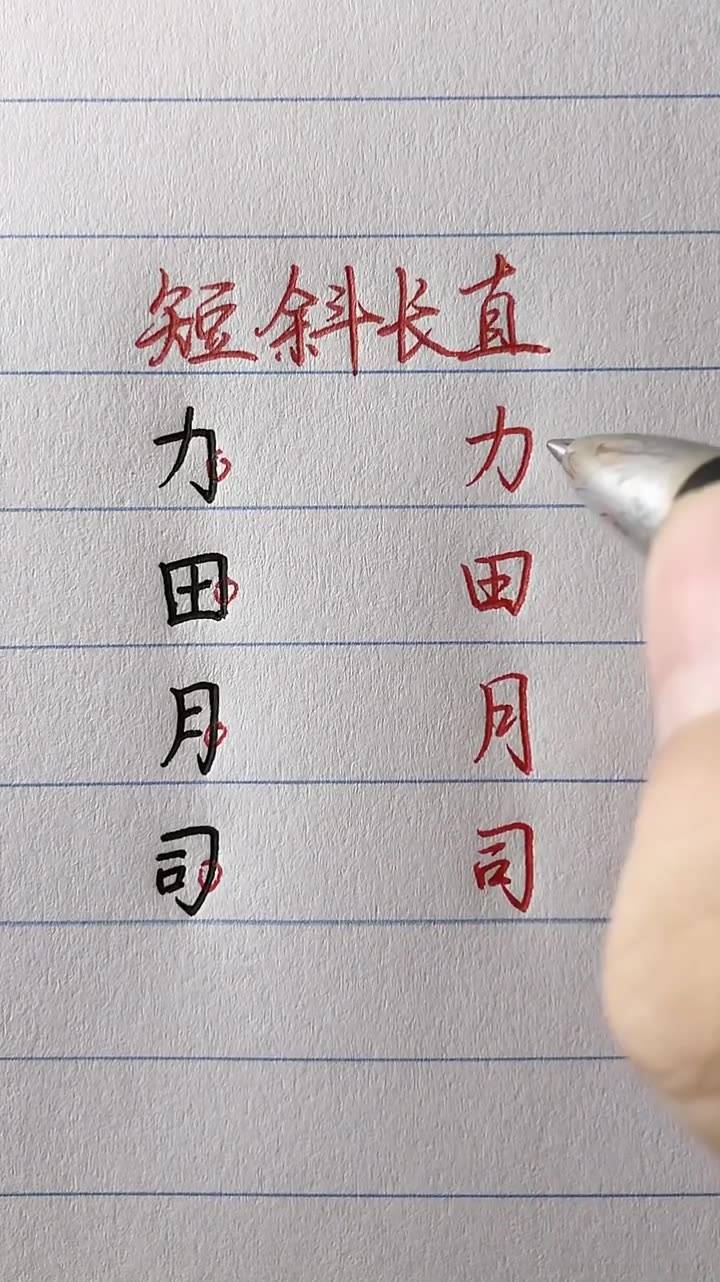 短斜长直
力 力
田 田
月 月
司 司